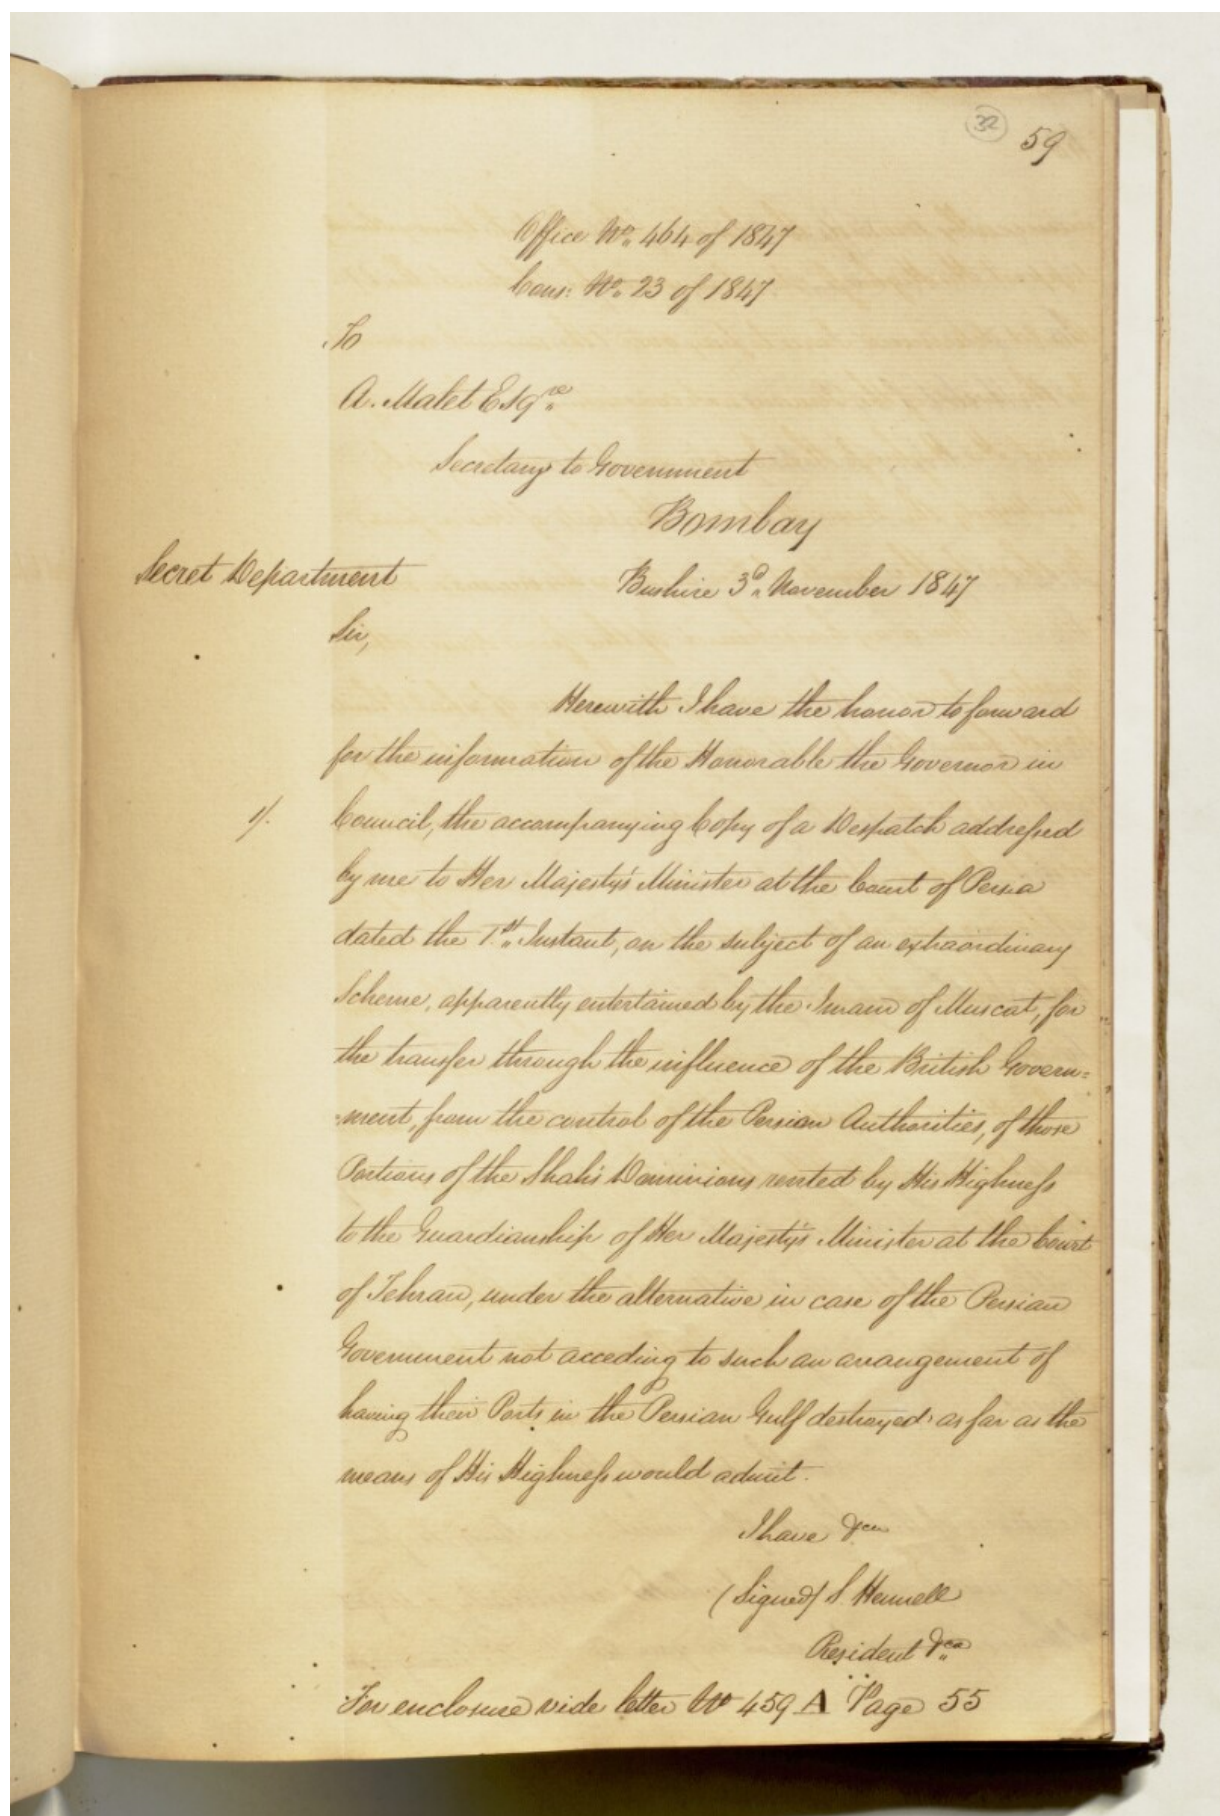 32
59
Office No. 464 of 1847
Cons: No. 23 of 1847
To
A. Malet Esqre
Secretary to Government
Bombay
Secret Department
Bushire 3d November 1847
Sir,
Herewith I have the honor to forward
for the information of the Honorable the Governor in
1/. Council, the accompanying Copy of a Despatch addressed
by me to Her Majesty's Minister at the Court of Persia
dated the 1st Instant, on the subject of an extraordinary
Scheme, apparently entertained by the Imam of Muscat, for
the transfer through the influence of the British Govern=
=ment, from the control of the Persian Authorities, of those
Portions of the Shah's Dominions rented by His Highness
to the Guardianship of Her Majesty's Minister at the Court
of Tehran, under the alternative in case of the Persian
Government not acceding to such an arrangement of
having their Ports in the Persian Gulf destroyed as far as the
means of His Highness would admit.
I have &ca
(Signed) S. Hennell
Resident &ca
For enclosure vide letter No 459 A Page 55